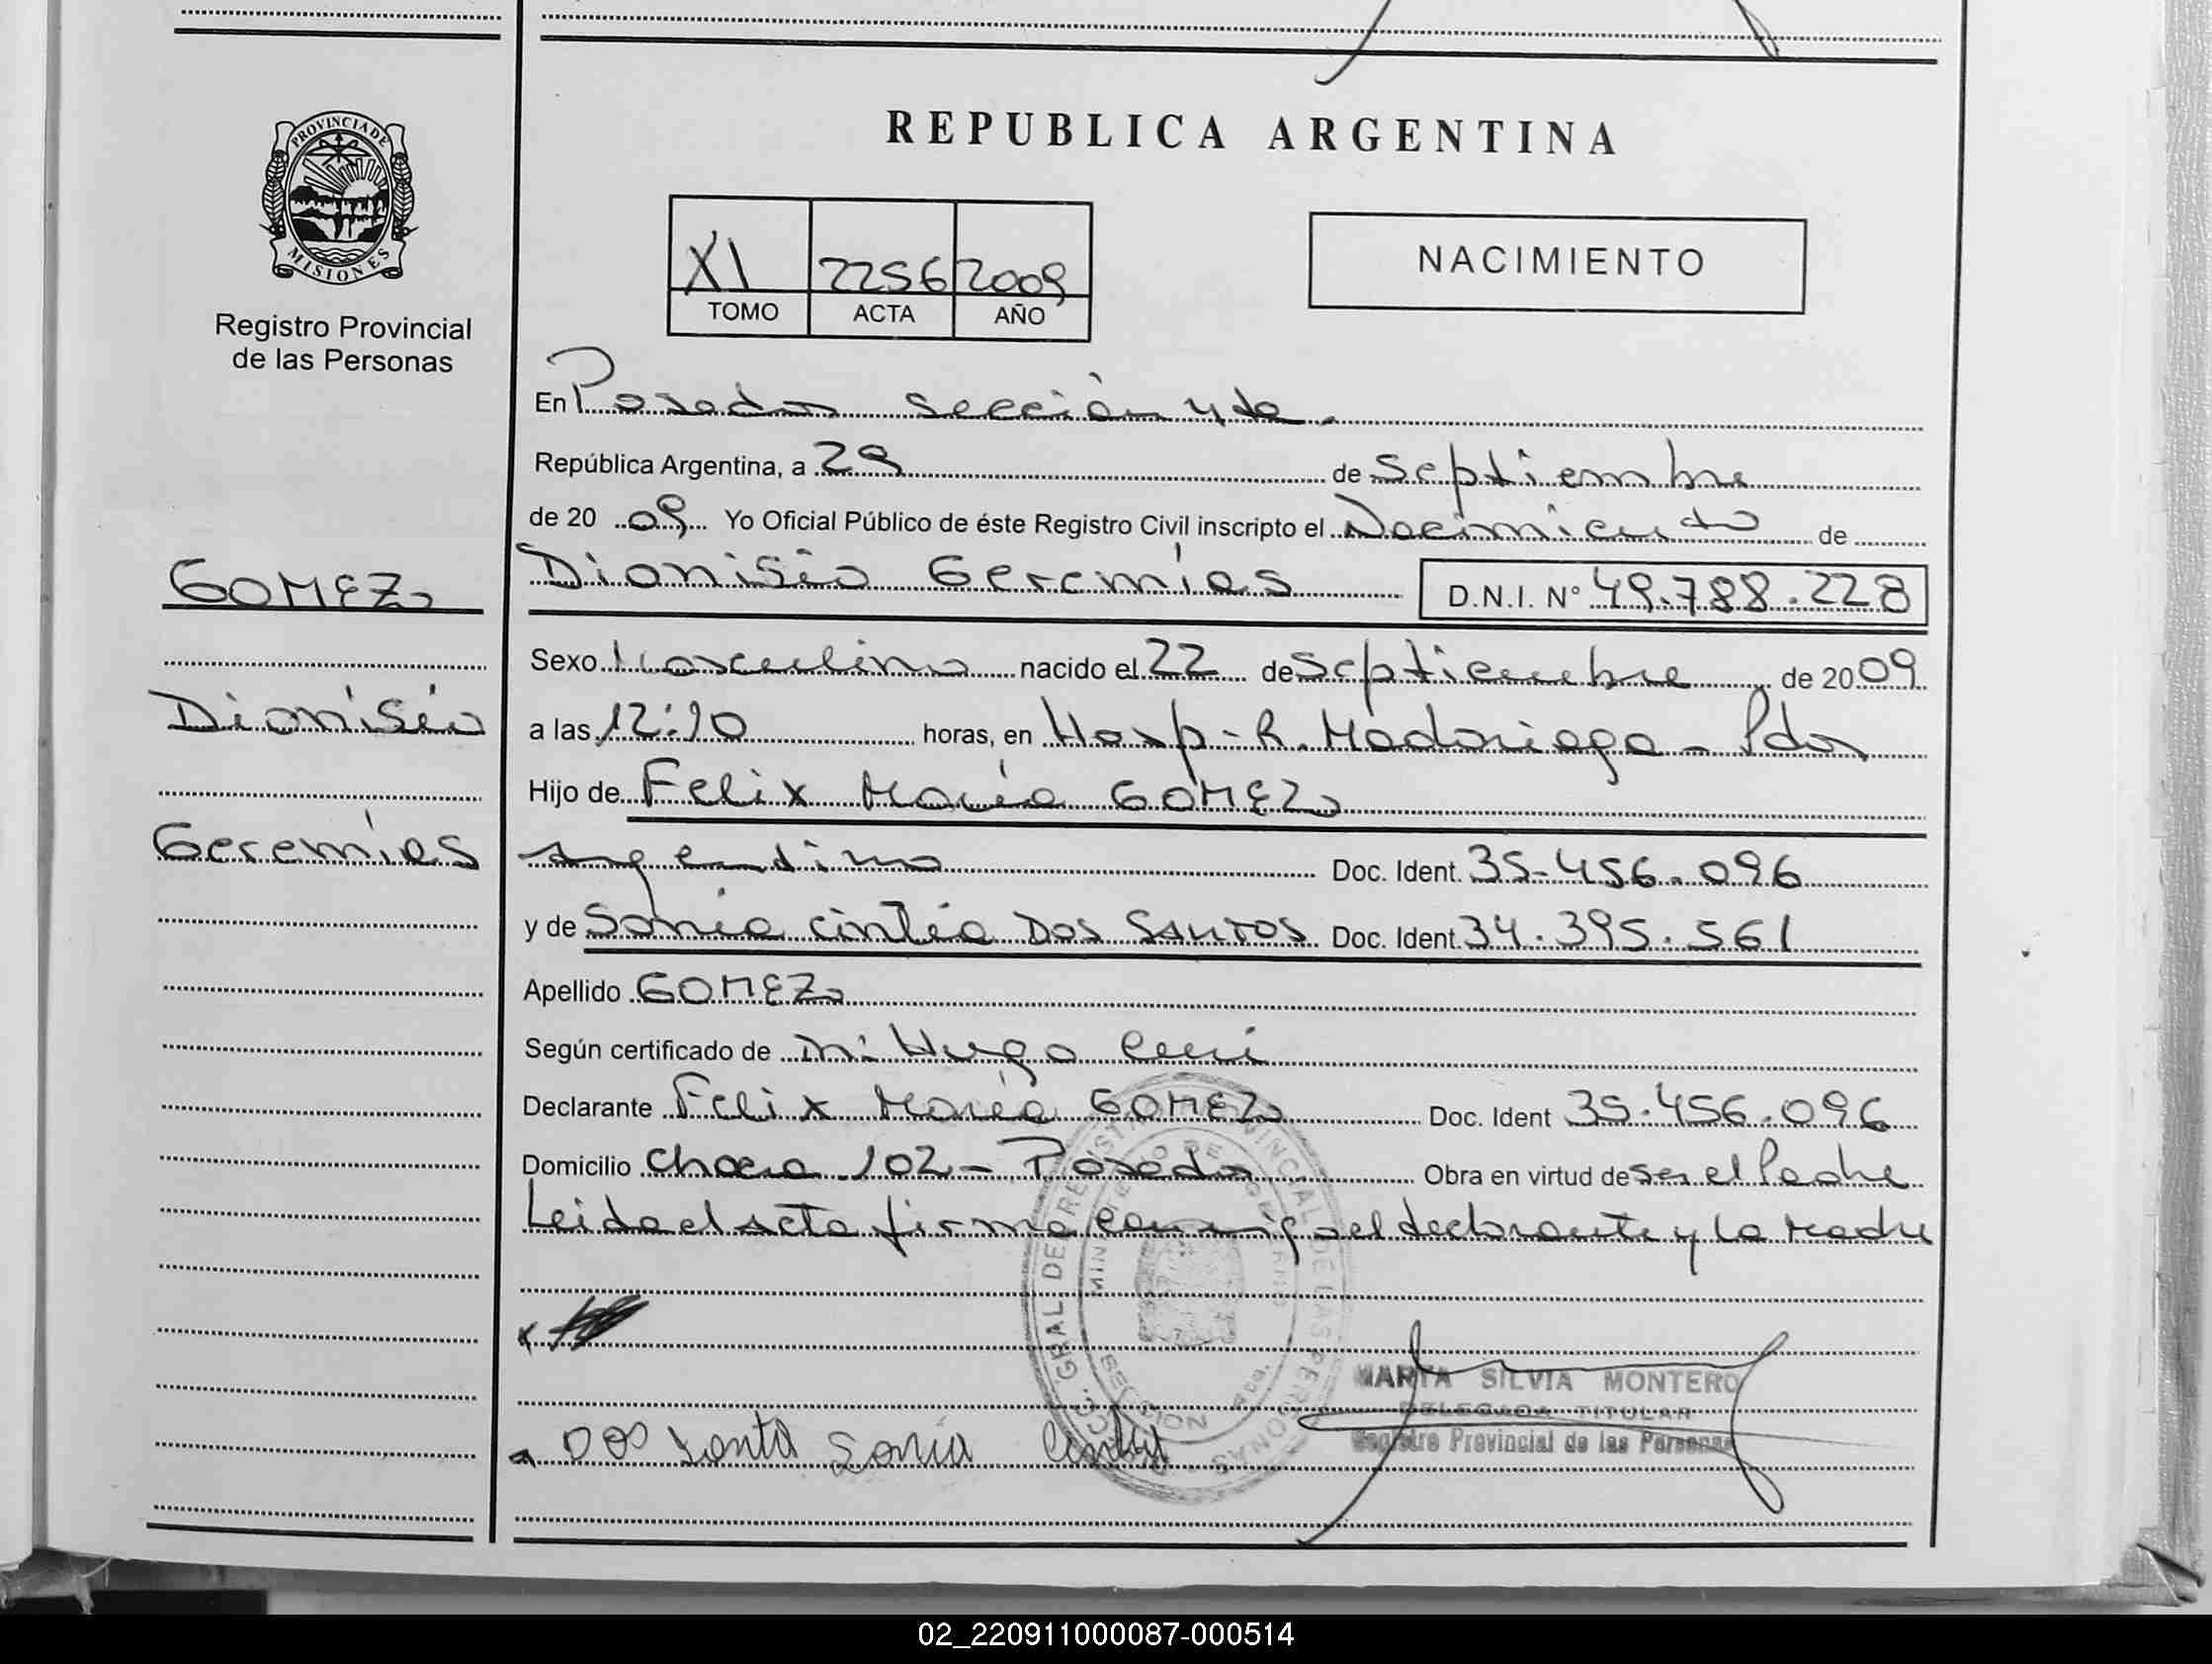 PROVINCIA DE
MISIONES
Registro Provincial
de las Personas
GOMEZ
Dionisio
Geremías
REPUBLICA ARGENTINA
XI 2256 2009
TOMO ACTA AÑO
NACIMIENTO
En Posadas sección 4ta.
República Argentina, a 29 de septiembre
de 20 09 Yo Oficial Público de éste Registro Civil inscripto el Nacimiento de
Dionisio Geremías D.N.I. N° 49.788.228
Sexo Masculino nacido el 22 de septiembre de 20 09
a las 12:10 horas, en Hosp. R. Madariaga - Pdas
Hijo de Felix María GOMEZ
Argentino Doc. Ident. 35.456.096
y de Sonia Cintia DOS SANTOS Doc. Ident. 34.395.561
Apellido GOMEZ
Según certificado de Hugo
Declarante Felix María GOMEZ Doc. Ident 35.456.096
Domicilio Chacra 102 - Posadas Obra en virtud de ser el Padre
Leida el acta firma conmigo el declarante y la Madre
MARTA SILVIA MONTERO
DELEGADA TITULAR
Registro Provincial de las Personas
Dos Santo Sonia
02_220911000087-000514